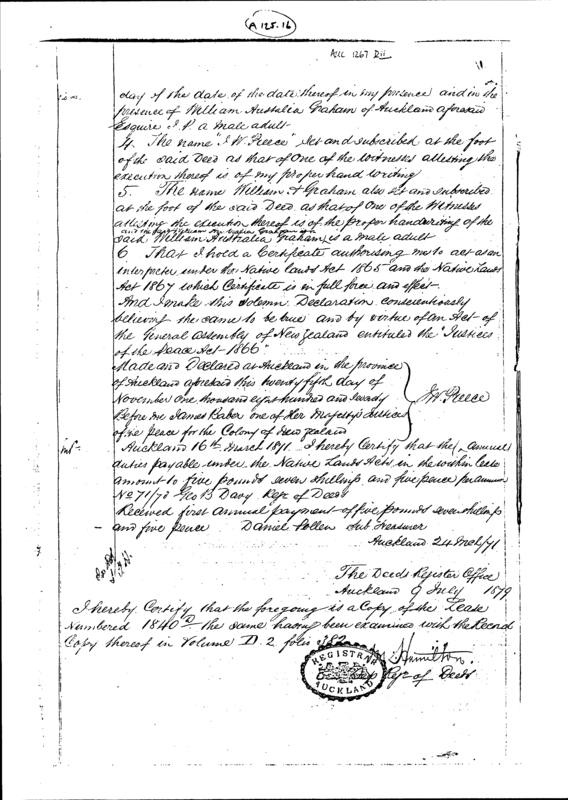 A 125.16
ALC 1267 D ii
11
day of the date of the date thereof in my presence and in the
presence of William Australia Graham of Auckland aforesaid
Esquire J.P. a male adult
4. The name "J W Preece" set and subscribed at the foot
of the said Deed as that of One of the witnesses attesting the
execution thereof is of my proper hand writing
5. The name William A Graham also set and subscribed
at the foot of the said Deed as that of One of the Witnesses
attesting the execution thereof is of the proper handwriting of the
said William Australia Graham is a male adult
6 That I hold a Certificate authorising me to act as an
interpreter under the Native Lands Act 1865 and the Native Lands
Act 1867 which Certificate is in full force and effect.
And I make this solemn Declaration conscientiously
believing the same to be true and by virtue of an Act of
the General Assembly of New Zealand entituled the "Justices
of the Peace Act 1866"
Made and Declared at Auckland in the province
of Auckland aforesaid this twenty fifth day of
November One thousand eight hundred and seventy
Before me James Baber one of Her Majesty's Justices
of the Peace for the Colony of New Zealand
JW Preece
Auckland 16th March 1871. I hereby Certify that the (annual)
duties payable under the Native Lands Acts in the within Lease
amount to five pounds seven shillings and five pence per annum
No 71/70 Geo B Davy Regr of Deeds
Received first annual payment of five pounds seven shillings
and five pence Daniel Pollen Sub Treasurer
Auckland 24 Mch/71
The Deeds Register Office
Auckland 9 July 1879
I hereby Certify that the foregoing is a Copy of the Lease
Numbered 1840D the same having been examined with the Record
Copy thereof in Volume D. 2 folio 382
Hamilton.
Regr of Deeds
REGISTRAR
AUCKLAND